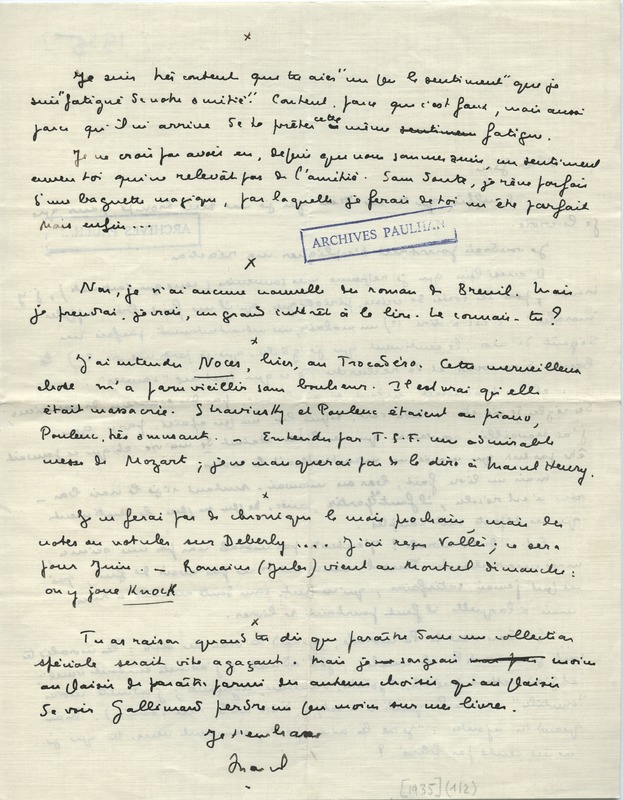 x
Je suis très content que tu aies "un peu le sentiment" que je
suis "fatigué de notre amitié". Content, parce que c'est faux, mais aussi
parce qu'il m'arrive de te prêter cette même sentiment fatigue.
Je ne crois pas avoir eu, depuis que nous sommes amis, un sentiment
envers toi qui ne relevât pas de l'amitié. Sans doute, je rêve parfois
d'une baguette magique, par laquelle je ferais de toi un être parfait
Mais enfin...
ARCHIVES PAULHAN
x
Non, je n'ai aucune nouvelle du roman de Breuil. Mais
je prendrai, je crois, un grand intérêt à le lire. Le connais-tu ?
x
J'ai entendu Noces, hier, au Trocadéro. Cette merveilleuse
chose m'a paru vieillir sans bonheur. Il est vrai qu'elle
était massacrée. Stravinsky et Poulenc étaient au piano,
Poulenc, très amusant. — Entendu par T.S.F. une admirable
messe de Mozart ; je ne manquerai pas de le dire à Marcel Henry.
x
Je ne ferai pas de chronique le mois prochain, mais des
notes ou notules sur Deberly .... J'ai reçu Vallès ; ce sera
pour Juin. — Romains (Jules) vient au Montcel dimanche :
on y joue Knock
x
Tu as raison quand tu dis que paraître dans une collection
spéciale serait vite agaçant. Mais je songeais moins
au plaisir de paraître parmi des auteurs choisis qu'au plaisir
de voir Gallimard perdre un peu moins sur mes livres.
Je t'embrasse
Marcel
[1935] (1/2)